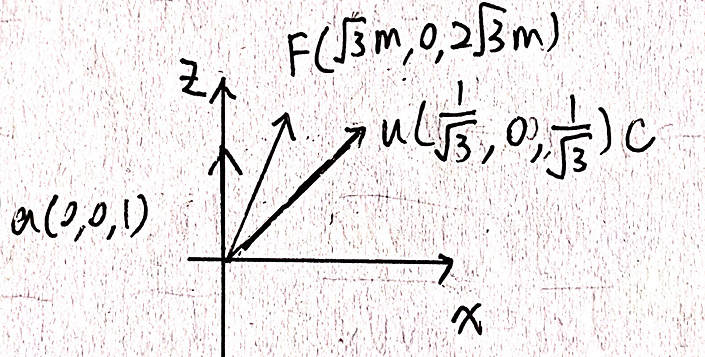 F(√3m,0,2√3m)
Z
u(1/√3, 0, 1/√3)C
a(0,0,1)
x